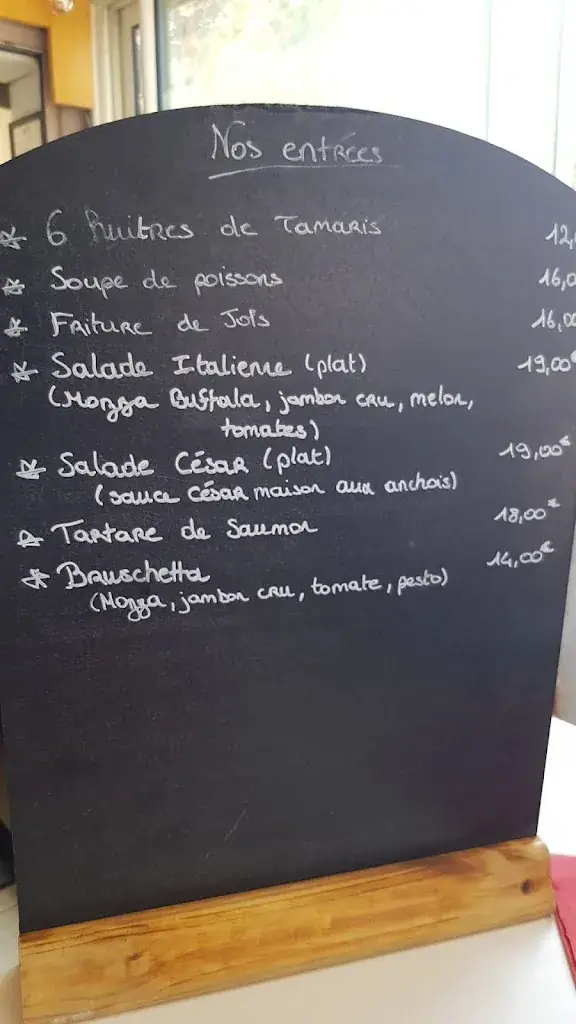 Nos entrées
6 Huitres de Tamaris 12,
Soupe de poissons 16,0
Friture de Joïs 16,00
Salade Italienne (plat) 19,00€
(Mozza Buffala, jambon cru, melon,
tomates)
Salade César (plat) 19,00€
(sauce César maison aux anchois)
Tartare de Saumon 18,00€
Bruschetta 14,00€
(Mozza, jambon cru, tomate, pesto)